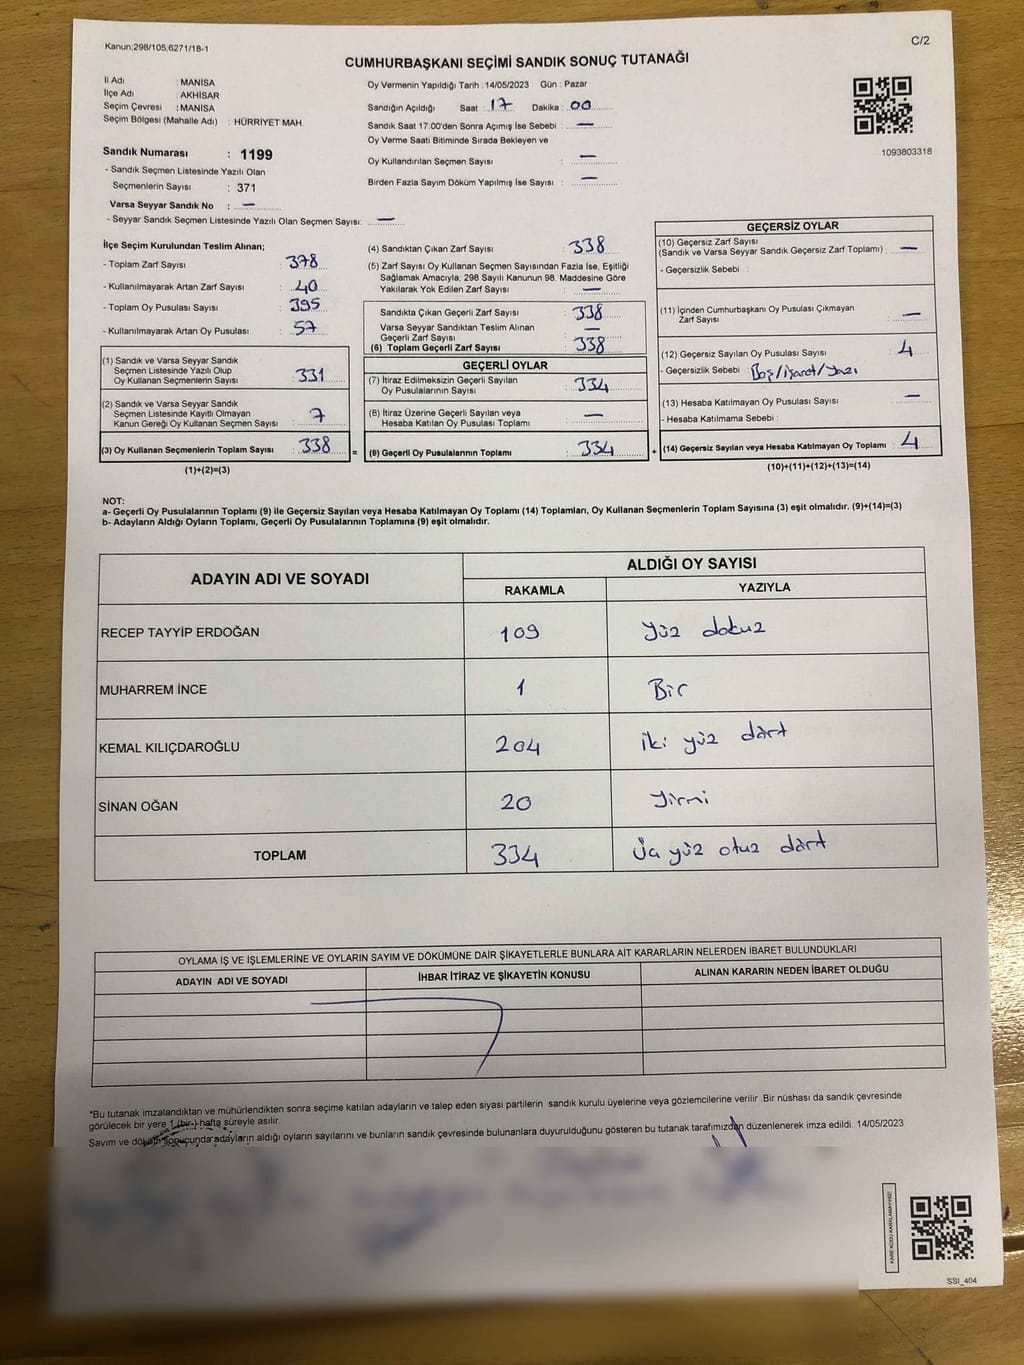 Kanun;298/105,6271/18-1
C/2
CUMHURBAŞKANI SEÇİMİ SANDIK SONUÇ TUTANAĞI
İl Adı : MANİSA
İlçe Adı : AKHİSAR
Seçim Çevresi : MANİSA
Seçim Bölgesi (Mahalle Adı) : HÜRRİYET MAH.
Sandık Numarası : 1199
- Sandık Seçmen Listesinde Yazılı Olan
Seçmenlerin Sayısı : 371
Varsa Seyyar Sandık No : —
- Seyyar Sandık Seçmen Listesinde Yazılı Olan Seçmen Sayısı: —
Oy Vermenin Yapıldığı Tarih : 14/05/2023 Gün : Pazar
Sandığın Açıldığı Saat : 17 Dakika : 00
Sandık Saat 17:00'den Sonra Açımış İse Sebebi : —
Oy Verme Saati Bitiminde Sırada Bekleyen ve
Oy Kullandırılan Seçmen Sayısı : —
Birden Fazla Sayım Döküm Yapılmış İse Sayısı : —
1093803318
İlçe Seçim Kurulundan Teslim Alınan;
- Toplam Zarf Sayısı : 378
- Kullanılmayarak Artan Zarf Sayısı : 40
- Toplam Oy Pusulası Sayısı : 395
- Kullanılmayarak Artan Oy Pusulası : 57
(1) Sandık ve Varsa Seyyar Sandık
Seçmen Listesinde Yazılı Olup
Oy Kullanan Seçmenlerin Sayısı : 331
(2) Sandık ve Varsa Seyyar Sandık
Seçmen Listesinde Kayıtlı Olmayan
Kanun Gereği Oy Kullanan Seçmen Sayısı : 7
(3) Oy Kullanan Seçmenlerin Toplam Sayısı : 338
(1)+(2)=(3)
(4) Sandıktan Çıkan Zarf Sayısı : 338
(5) Zarf Sayısı Oy Kullanan Seçmen Sayısından Fazla İse, Eşitliği
Sağlamak Amacıyla; 298 Sayılı Kanunun 98. Maddesine Göre
Yakılarak Yok Edilen Zarf Sayısı : —
Sandıkta Çıkan Geçerli Zarf Sayısı : 338
Varsa Seyyar Sandıktan Teslim Alınan
Geçerli Zarf Sayısı : —
(6) Toplam Geçerli Zarf Sayısı : 338
GEÇERLİ OYLAR
(7) İtiraz Edilmeksizin Geçerli Sayılan
Oy Pusulalarının Sayısı : 334
(8) İtiraz Üzerine Geçerli Sayılan veya
Hesaba Katılan Oy Pusulası Toplamı : —
= (9) Geçerli Oy Pusulalarının Toplamı : 334
GEÇERSİZ OYLAR
(10) Geçersiz Zarf Sayısı
(Sandık ve Varsa Seyyar Sandık Geçersiz Zarf Toplamı) : —
- Geçersizlik Sebebi :
(11) İçinden Cumhurbaşkanı Oy Pusulası Çıkmayan
Zarf Sayısı : —
(12) Geçersiz Sayılan Oy Pusulası Sayısı : 4
- Geçersizlik Sebebi : Boş/işaret/Yazı
(13) Hesaba Katılmayan Oy Pusulası Sayısı : —
- Hesaba Katılmama Sebebi :
+ (14) Geçersiz Sayılan veya Hesaba Katılmayan Oy Toplamı : 4
(10)+(11)+(12)+(13)=(14)
NOT:
a- Geçerli Oy Pusulalarının Toplamı (9) ile Geçersiz Sayılan veya Hesaba Katılmayan Oy Toplamı (14) Toplamları, Oy Kullanan Seçmenlerin Toplam Sayısına (3) eşit olmalıdır. (9)+(14)=(3)
b- Adayların Aldığı Oyların Toplamı, Geçerli Oy Pusulalarının Toplamına (9) eşit olmalıdır.
ADAYIN ADI VE SOYADI ALDIĞI OY SAYISI
RAKAMLA YAZIYLA
RECEP TAYYİP ERDOĞAN 109 Yüz dokuz
MUHARREM İNCE 1 Bir
KEMAL KILIÇDAROĞLU 204 iki yüz dört
SİNAN OĞAN 20 Yirmi
TOPLAM 334 Üç yüz otuz dört
OYLAMA İŞ VE İŞLEMLERİNE VE OYLARIN SAYIM VE DÖKÜMÜNE DAİR ŞİKAYETLERLE BUNLARA AİT KARARLARIN NELERDEN İBARET BULUNDUKLARI
ADAYIN ADI VE SOYADI İHBAR İTİRAZ VE ŞİKAYETİN KONUSU ALINAN KARARIN NEDEN İBARET OLDUĞU
*Bu tutanak imzalandıktan ve mühürlendikten sonra seçime katılan adayların ve talep eden siyasi partilerin sandık kurulu üyelerine veya gözlemcilerine verilir .Bir nüshası da sandık çevresinde
görülecek bir yere 1 (bir-) hafta süreyle asılır.
Sayım ve döküm sonucunda adayların aldığı oyların sayılarını ve bunların sandık çevresinde bulunanlara duyurulduğunu gösteren bu tutanak tarafımızdan düzenlenerek imza edildi. 14/05/2023
KARE KODU KARALAMAYINIZ!
SSI_404